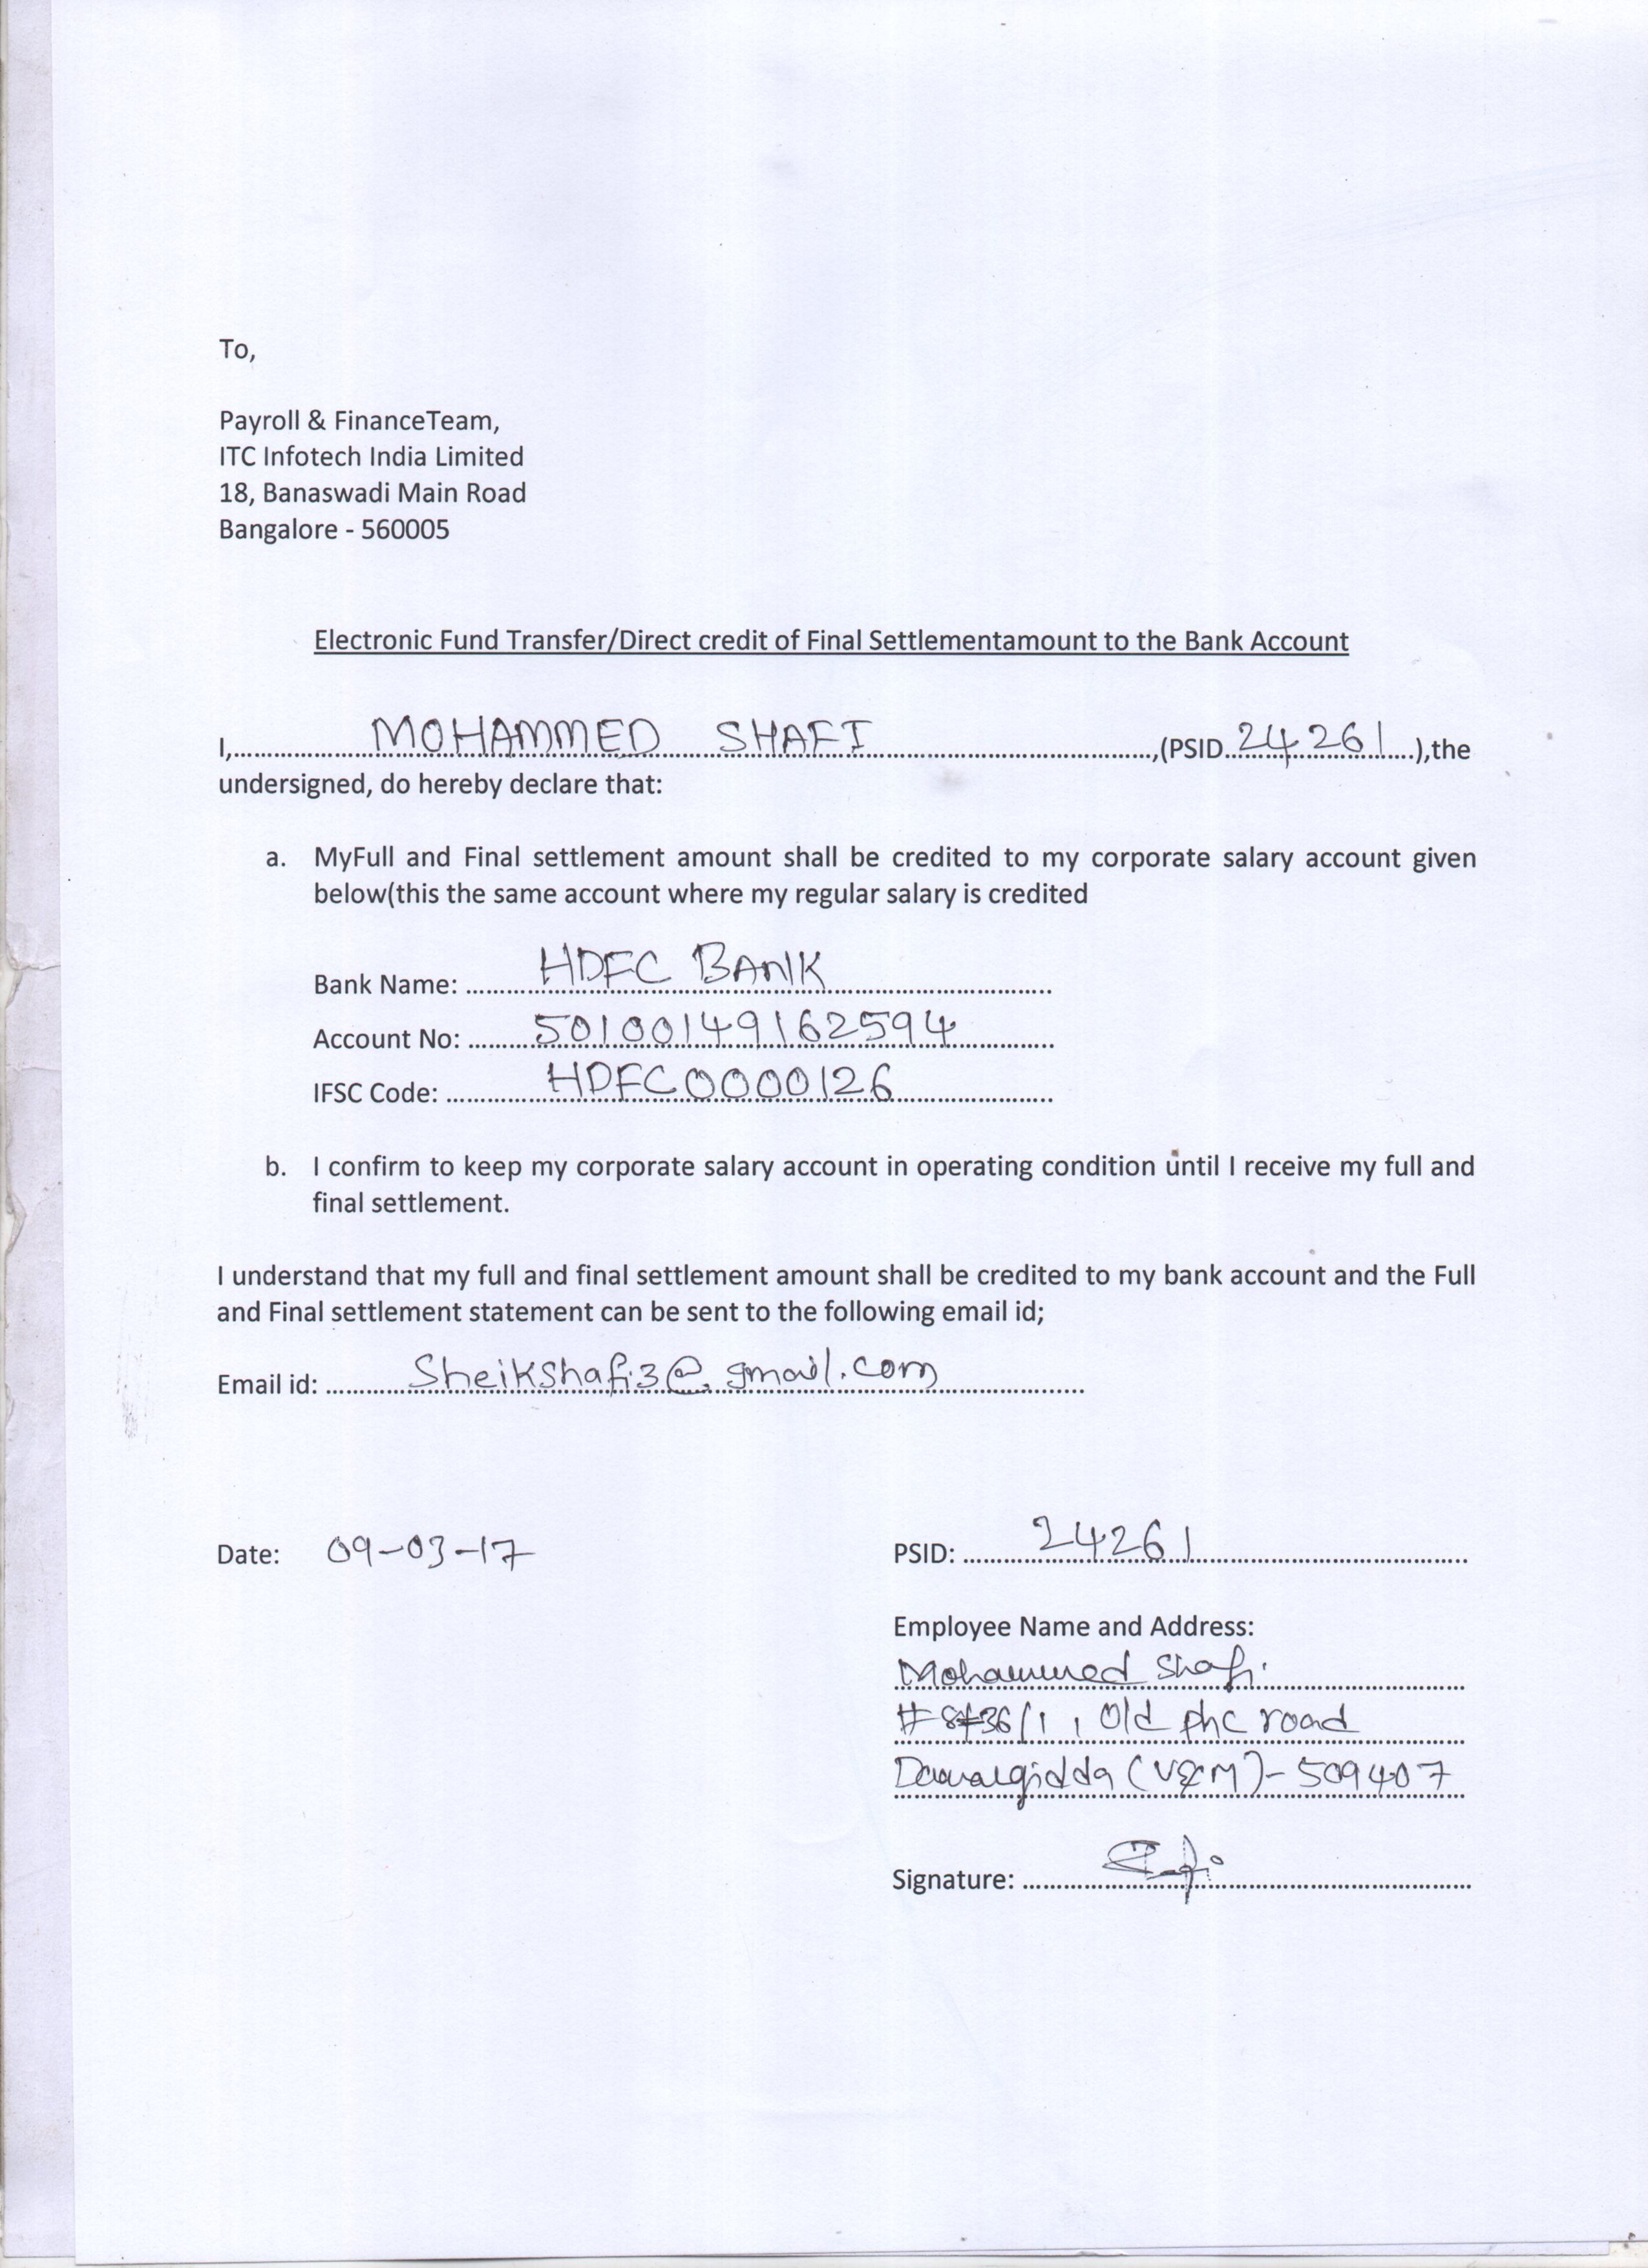 To,
Payroll & FinanceTeam,
ITC Infotech India Limited
18, Banaswadi Main Road
Bangalore - 560005
Electronic Fund Transfer/Direct credit of Final Settlementamount to the Bank Account
I,.......... MOHAMMED SHAFI ..........,(PSID. 24261 ....),the
undersigned, do hereby declare that:
a. MyFull and Final settlement amount shall be credited to my corporate salary account given
below(this the same account where my regular salary is credited
Bank Name: .......... HDFC BANK ..........
Account No: .......... 50100149162594 ..........
IFSC Code: .......... HDFC0000126 ..........
b. I confirm to keep my corporate salary account in operating condition until I receive my full and
final settlement.
I understand that my full and final settlement amount shall be credited to my bank account and the Full
and Final settlement statement can be sent to the following email id;
Email id: .......... Sheikshafi3@gmail.com ..........
Date: 09-03-17
PSID: .......... 24261 ..........
Employee Name and Address:
Mohammed Shafi
Old phc road
(V&M)- 509407
Signature: ..........